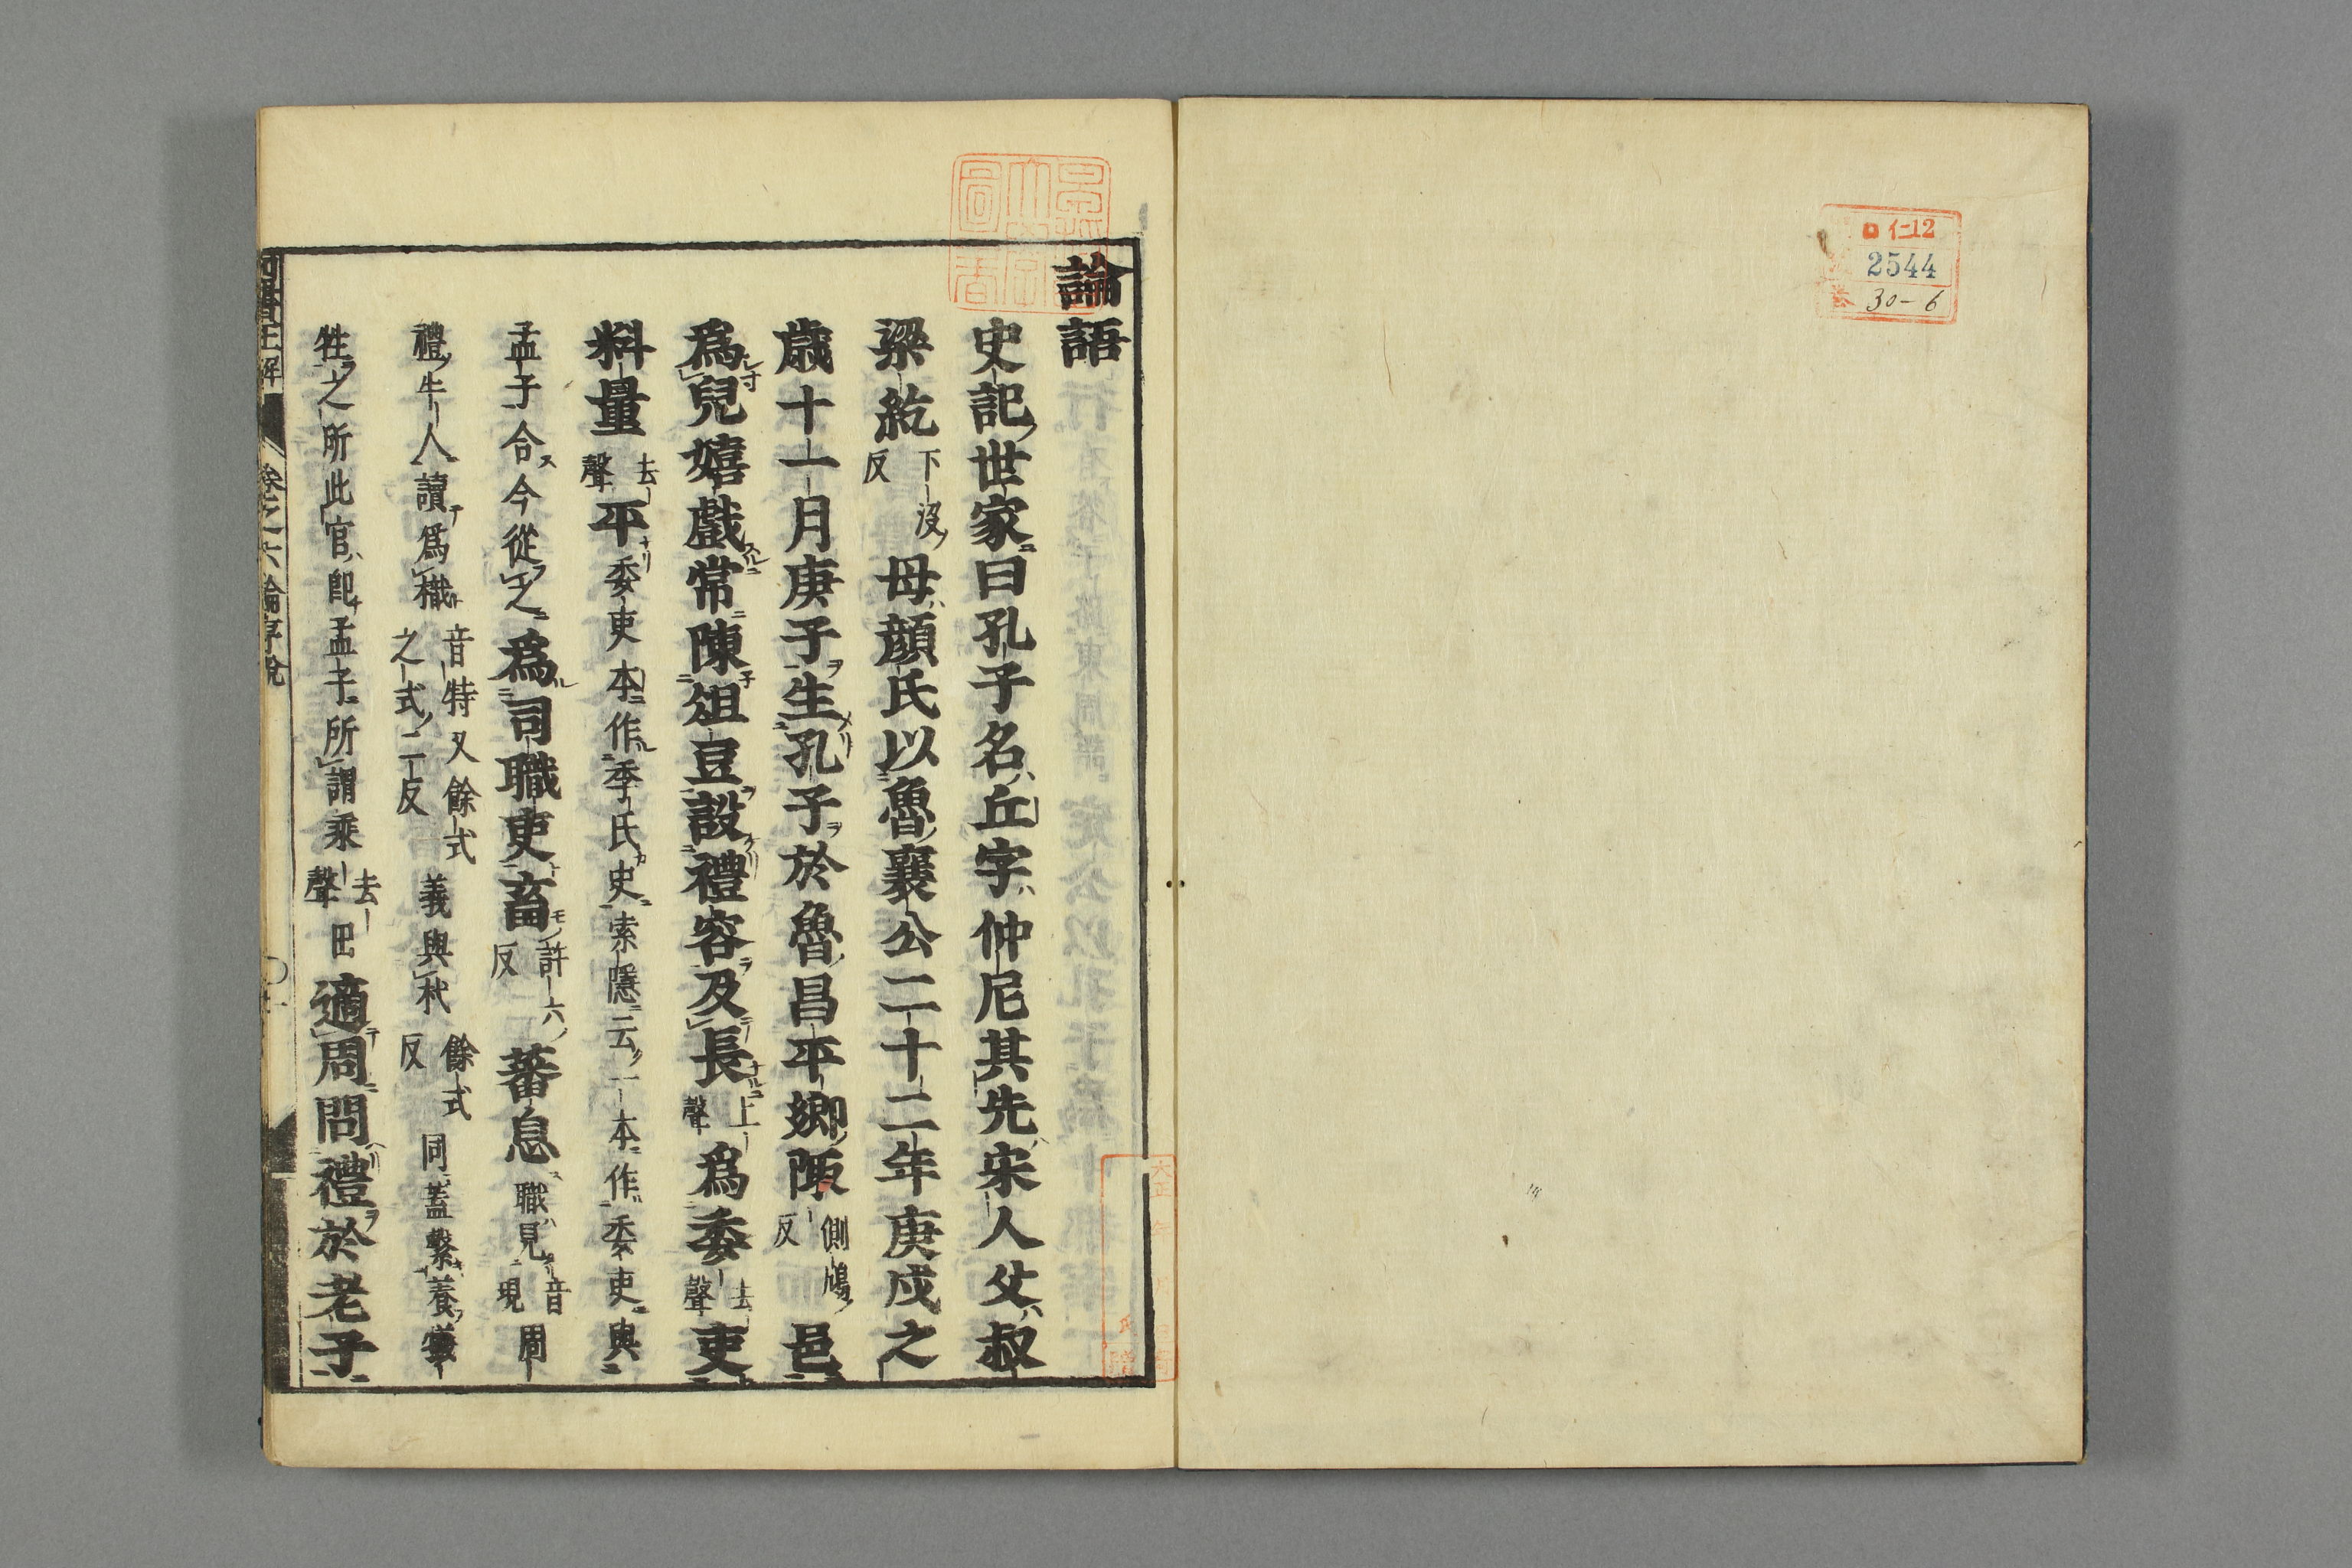 仁12
2544
30-6
論語
史記世家曰孔子名丘字仲尼其先宋人父叔
梁紇下沒反母顔氏以魯襄公二十二年庚戌之
歳十一月庚子生孔子於魯昌平鄉陬側鳩反邑
爲兒嬉戲常陳俎豆設禮容及長上聲爲委去聲吏
料量去聲平委吏本作季氏史索隱云一本作委吏與
孟子合今從之爲司職吏畜許六反蕃息職見音現周
禮牛人讀爲樴音特又餘式之式二反義與杙餘式反同蓋繫養犧
牲之所此官卽孟子所謂乘去聲田適周問禮於老子
卷之六論序說